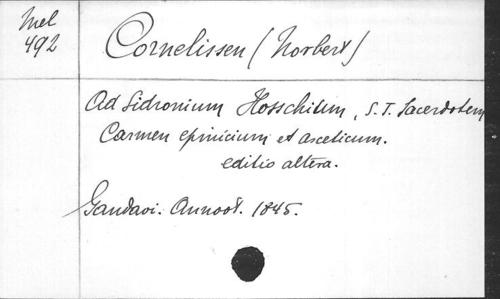 Mel
492
Cornelissen (Norbert)
Ad Sidronium Hosschium, S.T. Sacerdotem
Carmen epinicium et asceticum.
editio altera.
Gandavi. Annoot. 1845.